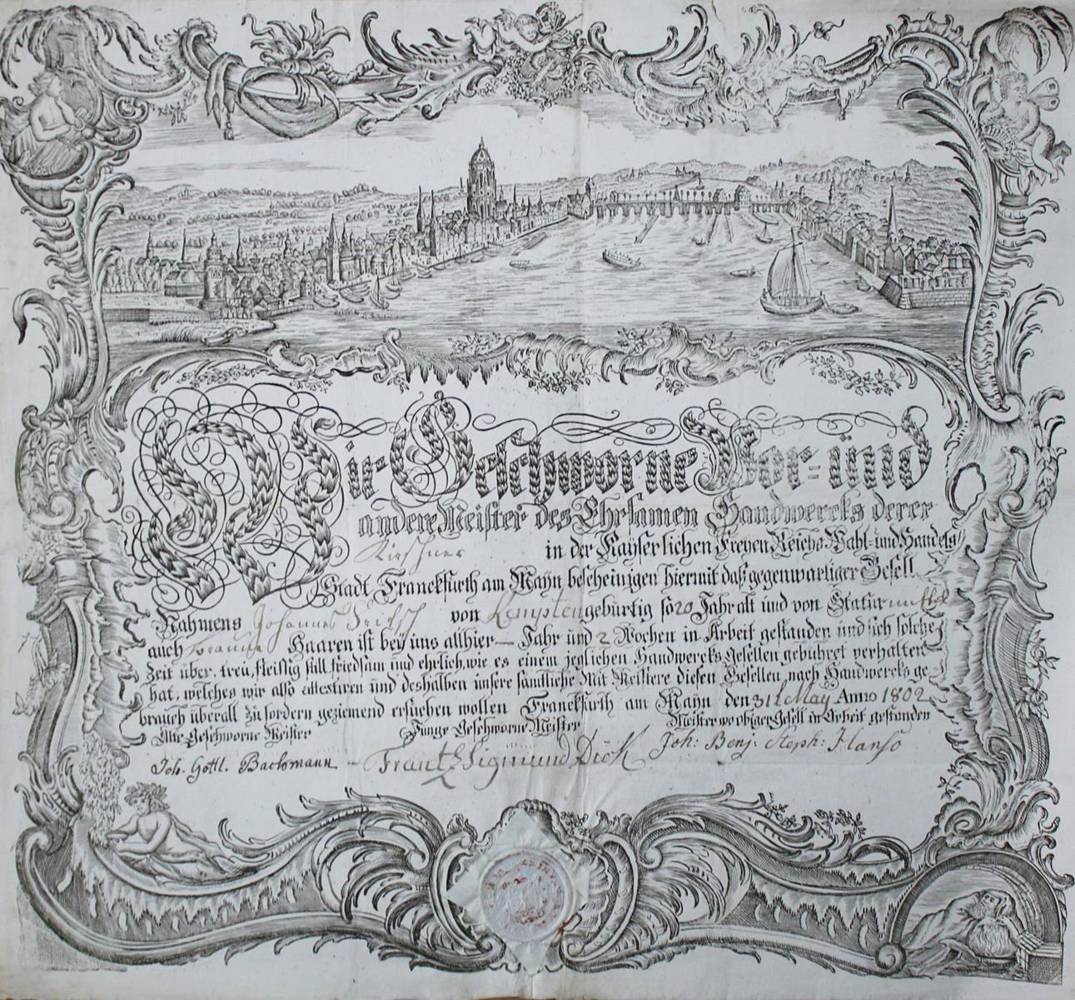 Wir Geschworne Vor- und
andere Meister des Ehrsamen Handwercks derer
Kirschner in der Kayserlichen Freyen Reichs-Wahl- und Handels
Stadt Franckfurth am Mayn bescheinigen hiermit daß gegenwärtiger Gesell
Nahmens Johannes von Kempten gebürtig so 20 Jahr alt und von Statur mittel
auch braunen Haaren ist bey uns allhier — Jahr und 2 Wochen in Arbeit gestanden und sich solche
Zeit über treu, fleißig still friedsam und ehrlich, wie es einem jeglichen Handwercks Gesellen gebühret verhalten
hat, welches wir also attestiren und deshalben unsere sämtliche Mit Meistere diesen Gesellen nach Handwercks ge-
brauch überall zu fordern geziemend ersuchen wollen Franckfurth am Mayn den 31t May Anno 1802
Alte Geschworne Meister Junge Geschworne Meister Meister wo obiger Gesell in Arbeit gestanden
Joh. Gottl. Bachmann — Frantz Sigmund Dick Joh: Benj. Steph: Hanso